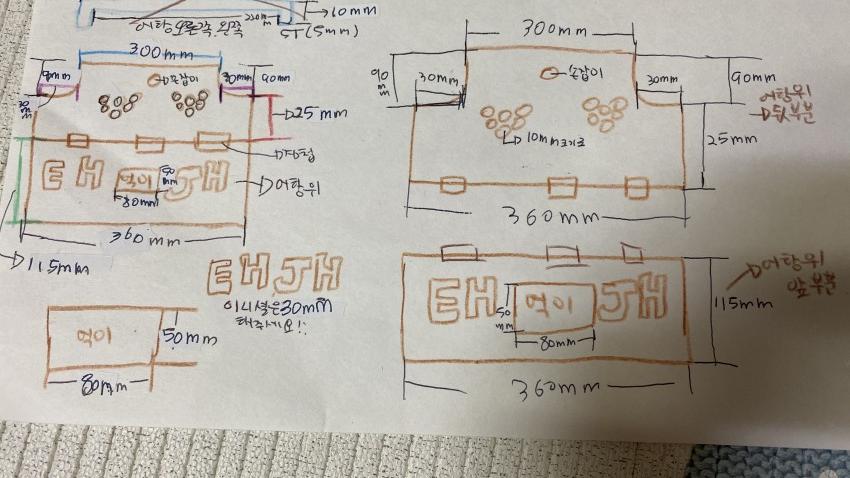 10mm
어항 오른쪽 왼쪽
5T(5mm)
300mm
30mm
90mm
손잡이
25mm
경첩
EH
먹이
JH
50mm
80mm
어항위
360mm
115mm
EHJH
이니셜은 30mm
해주세요!!
먹이
50mm
80mm
300mm
90mm
30mm
손잡이
30mm
90mm
어항위
뒷부분
10mm크기로
25mm
360mm
EH
먹이
JH
50mm
80mm
115mm
어항위
앞부분
360mm